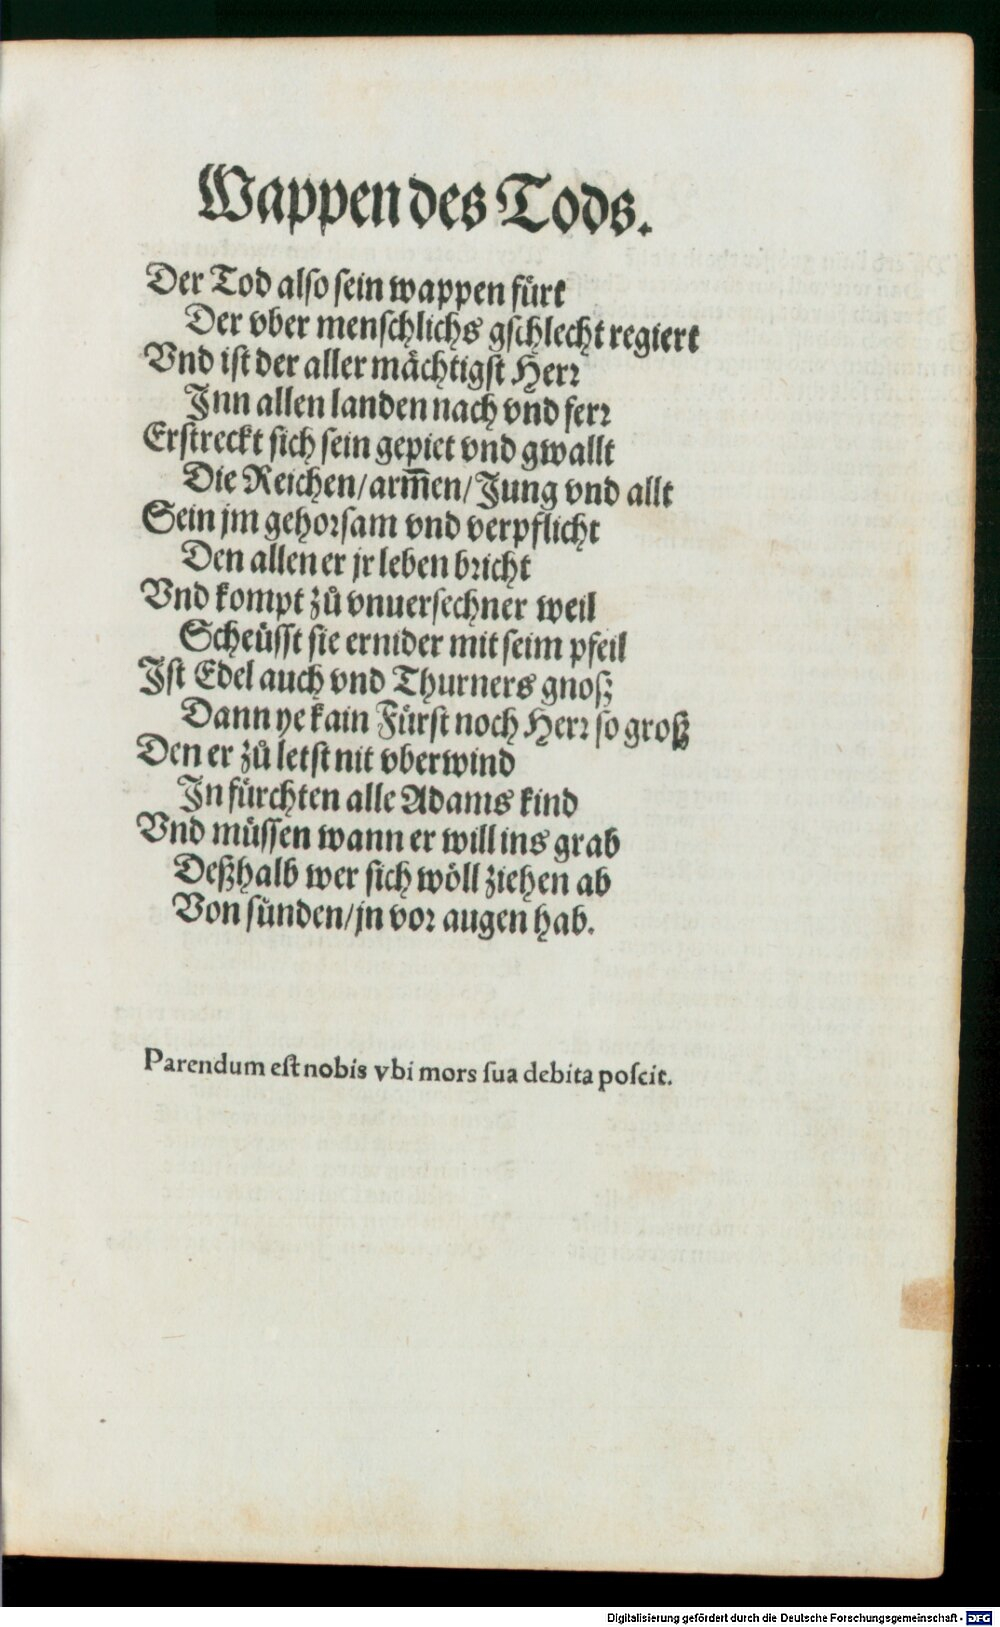 Wappen des Tods.
Der Tod also sein wappen fürt
Der vber menschlichs gschlecht regiert
Vnd ist der aller mächtigst Herr
Inn allen landen nach vnd ferr
Erstreckt sich sein gepiet vnd gwallt
Die Reichen/arm̄en/Jung vnd allt
Sein jm gehorsam vnd verpflicht
Den allen er jr leben bricht
Vnd kompt zů vnuersechner weil
Scheüsst sie ernider mit seim pfeil
Ist Edel auch vnd Thurners gnoß
Dann ye kain Fürst noch Herr so groß
Den er zů letst nit vberwind
In fürchten alle Adams kind
Vnd müssen wann er will ins grab
Deßhalb wer sich wöll ziehen ab
Von sünden/jn vor augen hab.
Parendum est nobis vbi mors sua debita poscit.
Digitalisierung gefördert durch die Deutsche Forschungsgemeinschaft - DFG